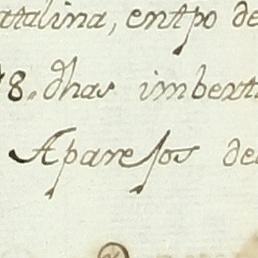 atalina, entpo de
8. dhas imbert
Aparejos de